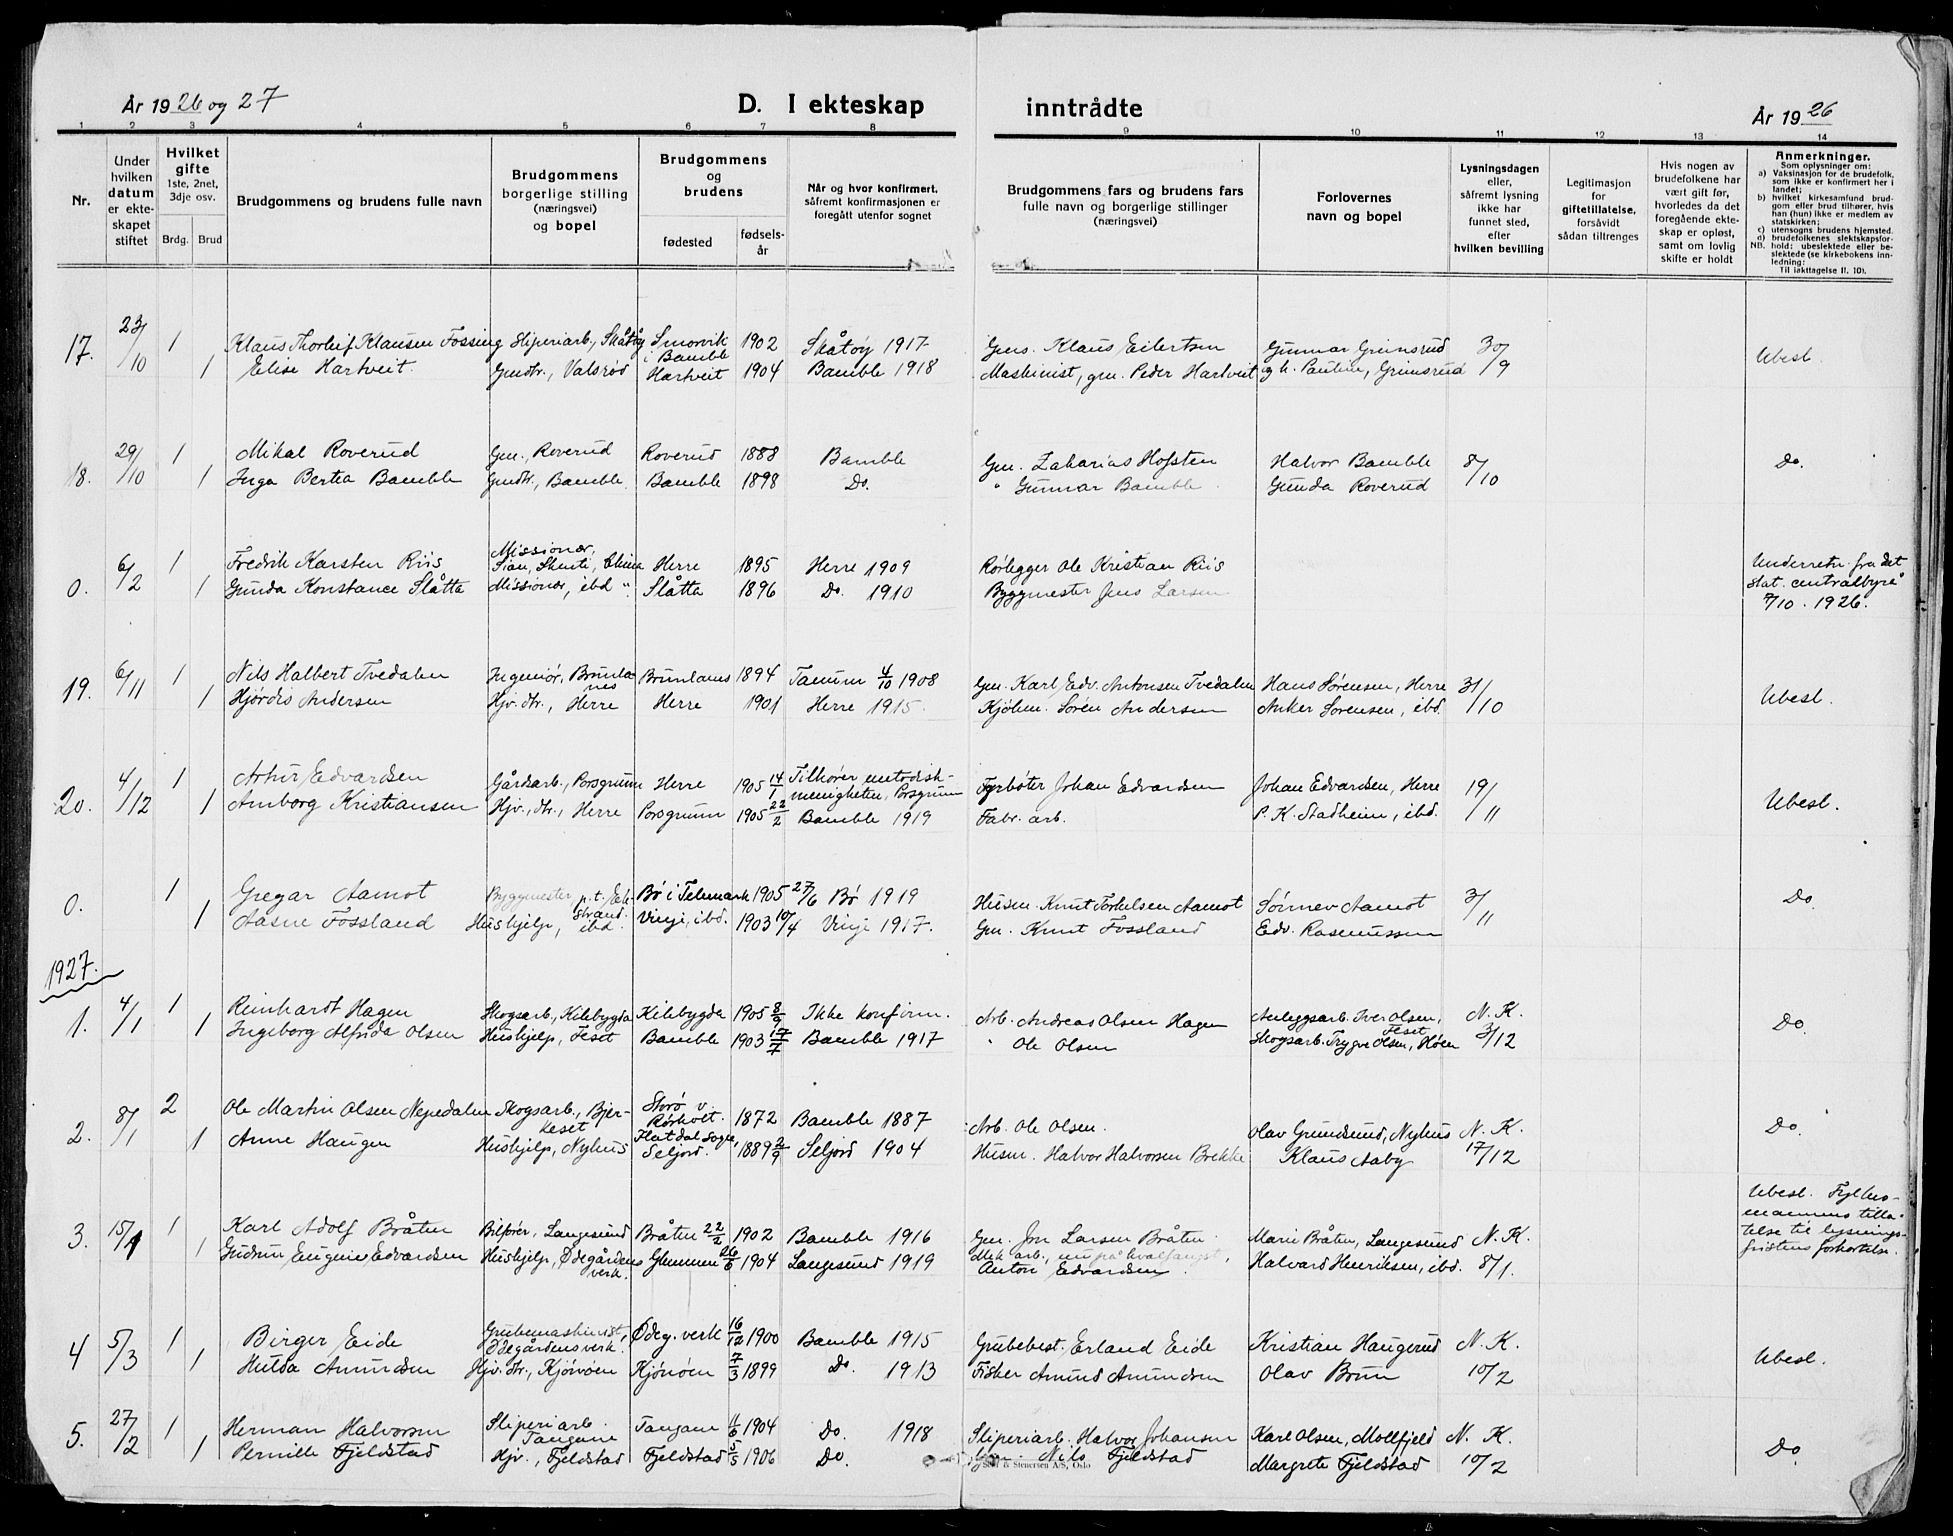 År 1926 og 27
D. I ekteskap inntrådte
År 1926
1 2 3 4 5 6 7 8 9 10 11 12 13 14
Nr.
Under hvilken datum er ekteskapet stiftet
Hvilket gifte 1ste, 2net, 3dje osv.
Brdg. Brud
Brudgommens og brudens fulle navn
Brudgommens borgerlige stilling (næringsvei) og bopel
Brudgommens og brudens
fødested
fødselsår
Når og hvor konfirmert, såfremt konfirmasjonen er foregått utenfor sognet
Brudgommens fars og brudens fars fulle navn og borgerlige stillinger (næringsvei)
Forlovernes navn og bopel
Lysningsdagen eller, såfremt lysning ikke har funnet sted, efter hvilken bevilling
Legitimasjon for giftetillatelse, forsåvidt sådan tiltrenges
Hvis nogen av brudefolkene har vært gift før, hvorledes da det foregående ekteskap er opløst, samt om lovlig skifte er holdt
Anmerkninger.
Som oplysninger om:
a) Vaksinasjon for de brudefolk, som ikke er konfirmert her i landet;
b) hvilket kirkesamfund brudgom eller brud tilhører, hvis han (hun) ikke er medlem av statskirken;
c) utensogns brudens hjemsted.
d) brudefolkenes slektskapsforhold: ubeslektede eller beslektede (se kirkebokens innledning:
NB.
Til iakttagelse II. 10).
17. 23/10 1 Klaus Thorleif Klausen Fossing Sliperiarb., Skåtøy Smorvik i Bamble 1902 Skåtøy 1917 Gms. Klaus Eilertsen Gunnar Grimsrud 30/9 Ubesl.
1 Elise Hartveit. Gmdtr., Valsrød Hartveit 1904 Bamble 1918 Maskinist, gm. Peder Hartveit og h. Pauline, Grimsrud
18. 29/10 1 Mikal Roverud Gm., Roverud Roverud 1888 Bamble Gm. Zakarias Hofsten Halvor Bamble 8/10 Do.
1 Inga Bertea Bamble Gmdtr., Bamble Bamble 1898 Do. " Gunnar Bamble Gunda Roverud
0. 6/2 1 Fredrik Karsten Riis Missionær, Sian, Shensi, China Herre 1895 Herre 1909 Rørlegger Ole Kristian Riis Underretn. fra det stat. centralbyrå 7/10. 1926.
1 Gunda Konstance Slåtta Missionær, ibd " Slåtta 1896 Do. 1910 Byggmester Jens Larsen
19. 6/11 1 Nils Halbert Tvedalen Ingeniør, Brunlanes Brunlanes 1894 Tanum 4/10 1908 Gm. Karl Edv. Antonsen Tvedalen Hans Sørensen, Herre 31/10 Ubesl.
1 Hjørdis Andersen Hjv. dtr., Herre Herre 1901 Herre 1915. Kjøbm. Søren Andersen Anker Sørensen, ibd.
20. 4/12 1 Artur Edvardsen Gårdsarb., Porsgrunn Herre 1905 14/1 Tilhører metodistmenigheten, Porsgrunn Fyrbøter Johan Edvardsen Johan Edvardsen, Herre 19/11 Ubesl.
1 Amborg Kristiansen Hjv. dtr., Herre Porsgrunn 1905 22/2 Bamble 1919 Fabr. arb. P. K. Stadheim, ibd.
0. 1 Gregar Aamot Byggmester p.t. Ekstrand. Bø i Telemark 1905 27/6 Bø 1919 Husm. Knut Torkelsen Aamot Sønnev Aamot 3/11 Do
1 Aasne Fossland Hushjelp, ibd. Vinje, ibd. 1903 10/4 Vinje 1917. Gm. Knut Fossland Edv. Rasmussen
1927.
1. 4/1 1 Reinhardt Hagen Skogsarb., Kilebygda Kilebygda 1905 8/9 Ikke konfirm. Arb. Andreas Olsen Hagen Anleggsarb. Iver Olsen, Feset N. K. 3/12 Do
1 Ingeborg Alfrida Olsen Hushjelp, Feset Bamble 1903 17/7 Bamble 1917 " Ole Olsen Skogsarb. Trygve Olsen, Høen
2. 8/1 2 Ole Martin Olsen Nepedalen Skogsarb., Bjerkeset Storø v. Rørholt. 1872 Bamble 1887 Arb. Ole Olsen. Olav Grundsund, Nyhus N. K. 17/12 Do.
1 Anne Haugen Hushjelp, Nyhus Flatdal sogn, Seljord. 1889 2/9 Seljord 1904 Husm. Halvor Halvorsen Brekke Klaus Aaby
3. 15/1 1 Karl Adolf Bråten Bilfører, Langesund Bråten 22/2 1902 Bamble 1916 Gm. Jon Larsen Bråten. Marie Bråten, Langesund N. K. 8/1. Ubesl. Fylkesmannens tillatelse til lysningsfristens forkortelse.
1 Gudrun Eugenie Edvardsen Hushjelp, Ødegårdens verk. Glemmen 26/6 1904 Langesund 1919 Mek. arb., nu på hvalfangst, Anton Edvardsen. Halvard Henriksen, ibd.
4 5/3 1 Birger Eide Grubemaskinist, Ødegårdens verk. Ødeg. verk 16/12 1900 Bamble 1915 Grubebest. Erland Eide Kristian Haugerud N. K. 10/2 Ubesl.
1 Hulda Amundsen Hjv. dtr., Kjønøen Kjønøen 7/3 1899 Do. 1913 Fisker Amund Amundsen Olav Brun
5. 27/2 1 Herman Halvorsen Sliperiarb. Tangane Tangane 11/6 1904 Do. 1918 Sliperiarb. Halvor Johansen Karl Olsen, Mollfjeld N. K. 10/2 Do
1 Pernille Fjeldstad Hjv., Fjeldstad Fjeldstad 5/5 1906 Do. Gm. Nils Fjeldstad Margrete Fjeldstad
& Stenersen A/S, Oslo